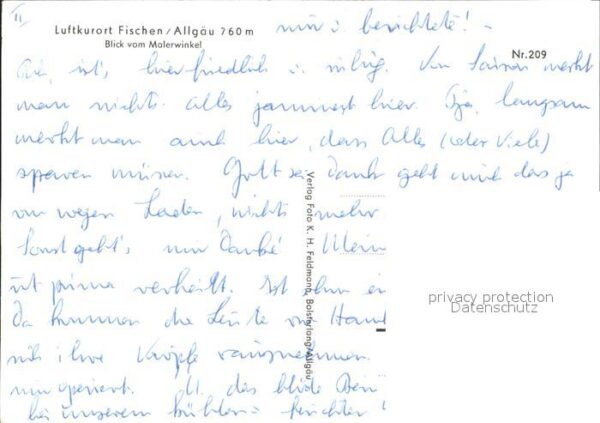 II
Luftkurort Fischen/Allgäu 760 m
Blick vom Malerwinkel
Nr. 209
mir i berichtete! -
ist's, hier friedlich u. ruhig. Von Saison merkt
man nichts. Alles jammert hier. Tja, langsam
merkt man auch hier, dass Alles (oder Viele)
sparen müssen. Gott sei Dank geht mich das ja
von wegen Laden, nichts mehr
Sonst geht's mir Danke! Mein
ist prima verheilt. Ist ein
Da kommen die Leute von
ihre Knöpfe rausnehmen.
operiert. U. das blöde Bein
bei unserem kühlen
Verlag Foto K. H. Feldmann, Bolsterlang/Allgäu
privacy protection
Datenschutz